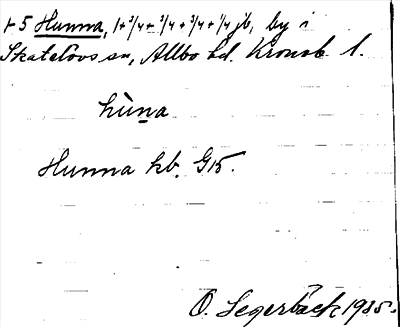 1-5 Hunna, 1+3/4+3/4+3/4+1/4 jb, by i
Skatelövs sn, Allbo hd. Kronob l.
hùna
Hunna kb. G15.
O. Segerbäck 1935.